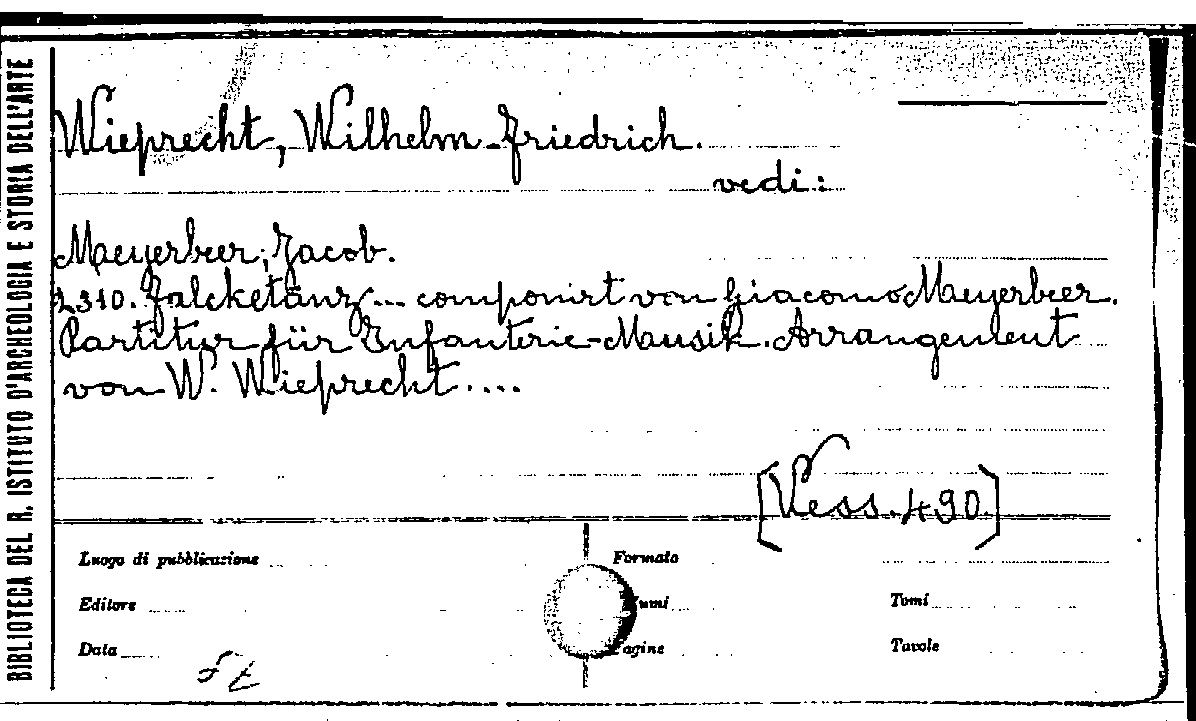 BIBLIOTECA DEL R. ISTITUTO D'ARCHEOLOGIA E STORIA DELL'ARTE
Wieprecht, Wilhelm-Friedrich.
vedi:
Meyerbeer, Jacob.
2310. Falcketänz... componirt von Giacomo Meyerbeer.
Partitur für Infanterie-Musik. Arrangement
von W. Wieprecht....
[Vess. 490]
Luogo di pubblicazione
Formato
Editore
Tomi
Data
Pagine
Tavole